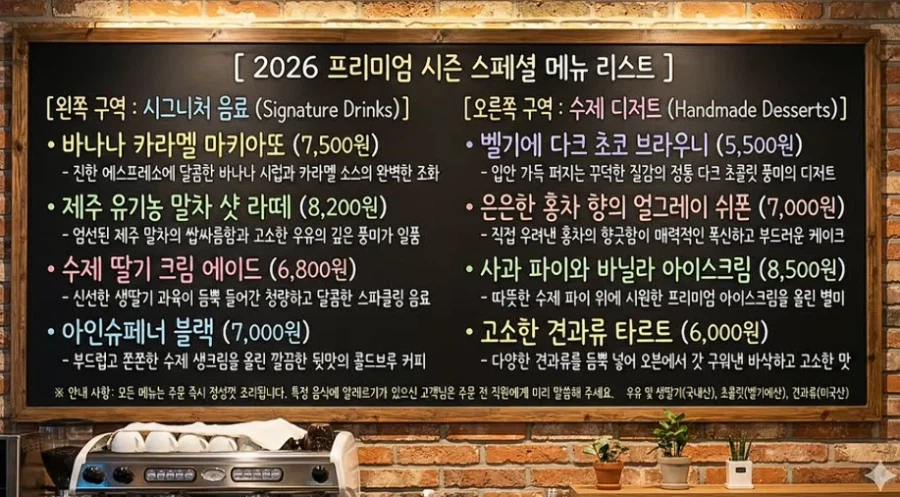 [ 2026 프리미엄 시즌 스페셜 메뉴 리스트 ]
[왼쪽 구역 : 시그니처 음료 (Signature Drinks)]
• 바나나 카라멜 마키아또 (7,500원)
- 진한 에스프레소에 달콤한 바나나 시럽과 카라멜 소스의 완벽한 조화
• 제주 유기농 말차 샷 라떼 (8,200원)
- 엄선된 제주 말차의 쌉싸름함과 고소한 우유의 깊은 풍미가 일품
• 수제 딸기 크림 에이드 (6,800원)
- 신선한 생딸기 과육이 듬뿍 들어간 청량하고 달콤한 스파클링 음료
• 아인슈페너 블랙 (7,000원)
- 부드럽고 쫀쫀한 수제 생크림을 올린 깔끔한 뒷맛의 콜드브루 커피
[오른쪽 구역 : 수제 디저트 (Handmade Desserts)]
• 벨기에 다크 초코 브라우니 (5,500원)
- 입안 가득 퍼지는 꾸덕한 질감의 정통 다크 초콜릿 풍미의 디저트
• 은은한 홍차 향의 얼그레이 쉬폰 (7,000원)
- 직접 우려낸 홍차의 향긋함이 매력적인 폭신하고 부드러운 케이크
• 사과 파이와 바닐라 아이스크림 (8,500원)
- 따뜻한 수제 파이 위에 시원한 프리미엄 아이스크림을 올린 별미
• 고소한 견과류 타르트 (6,000원)
- 다양한 견과류를 듬뿍 넣어 오븐에서 갓 구워낸 바삭하고 고소한 맛
※ 안내 사항: 모든 메뉴는 주문 즉시 정성껏 조리됩니다. 특정 음식에 알레르기가 있으신 고객님은 주문 전 직원에게 미리 말씀해 주세요. 우유 및 생딸기(국내산), 초콜릿(벨기에산), 견과류(미국산)